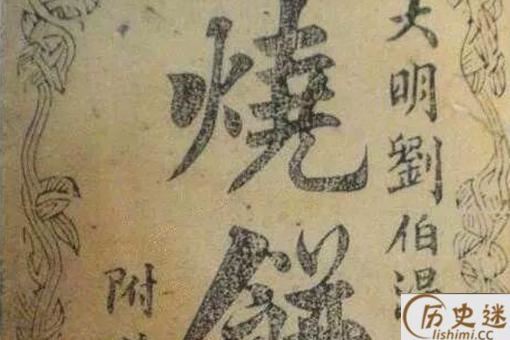 大明劉伯温
燒餅
附
历史迷
lishimi.cc